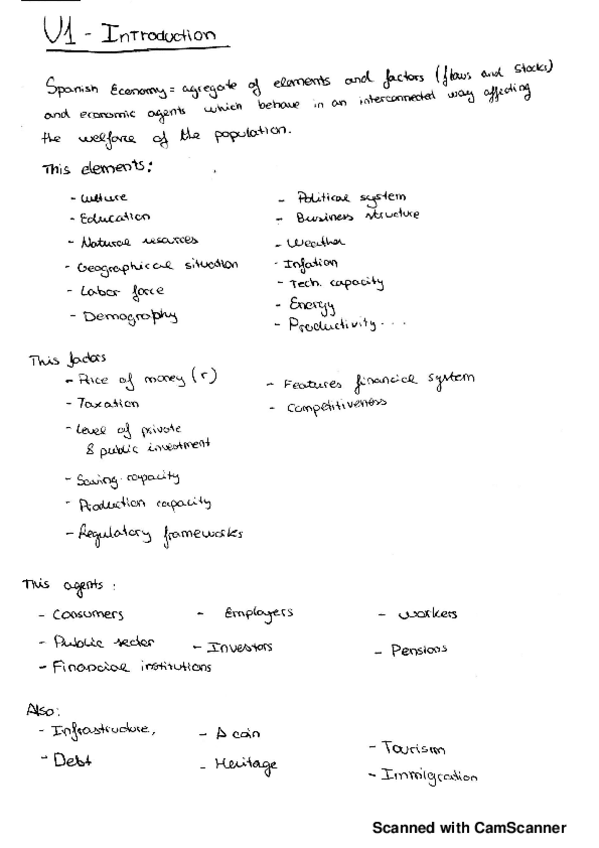 U1 - Introduction
Spanish Economy = agregate of elements and factors (flows and stocks)
and economic agents which behave in an interconnected way affecting
the welfare of the population.
This elements:
- Culture
- Education
- Natural resources
- Geographical situation
- Labor force
- Demography
- Political system
- Business structure
- Weather
- Inflation
- Tech. capacity
- Energy
- Productivity...
This factors
- Price of money (r)
- Taxation
- Level of private
& public investment
- Saving capacity
- Production capacity
- Regulatory frameworks
- Features financial system
- Competitiveness
This agents:
- Consumers
- Public sector
- Financial institutions
- Employers
- Investors
- Workers
- Pensions
Also:
- Infrastructure,
- Debt
- A coin
- Heritage
- Tourism
- Immigration
Scanned with CamScanner